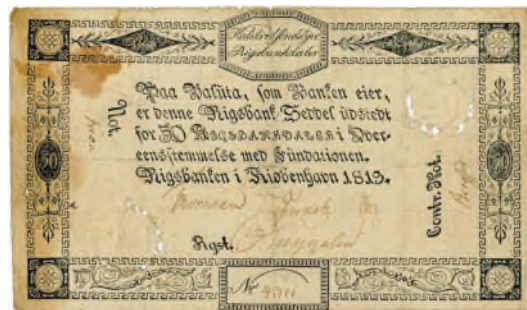 Halvtredsindstyve
Rigsbankdaler
Paa Valuta, som Banken eier,
er denne Rigsbank-Seddel udstedt
for 50 RIGSBANKDALER i Over-
eensstemmelse med Fundationen.
Rigsbanken i Kiøbenhavn 1813.
Not.
Contr. Not.
Rgst.
50
No